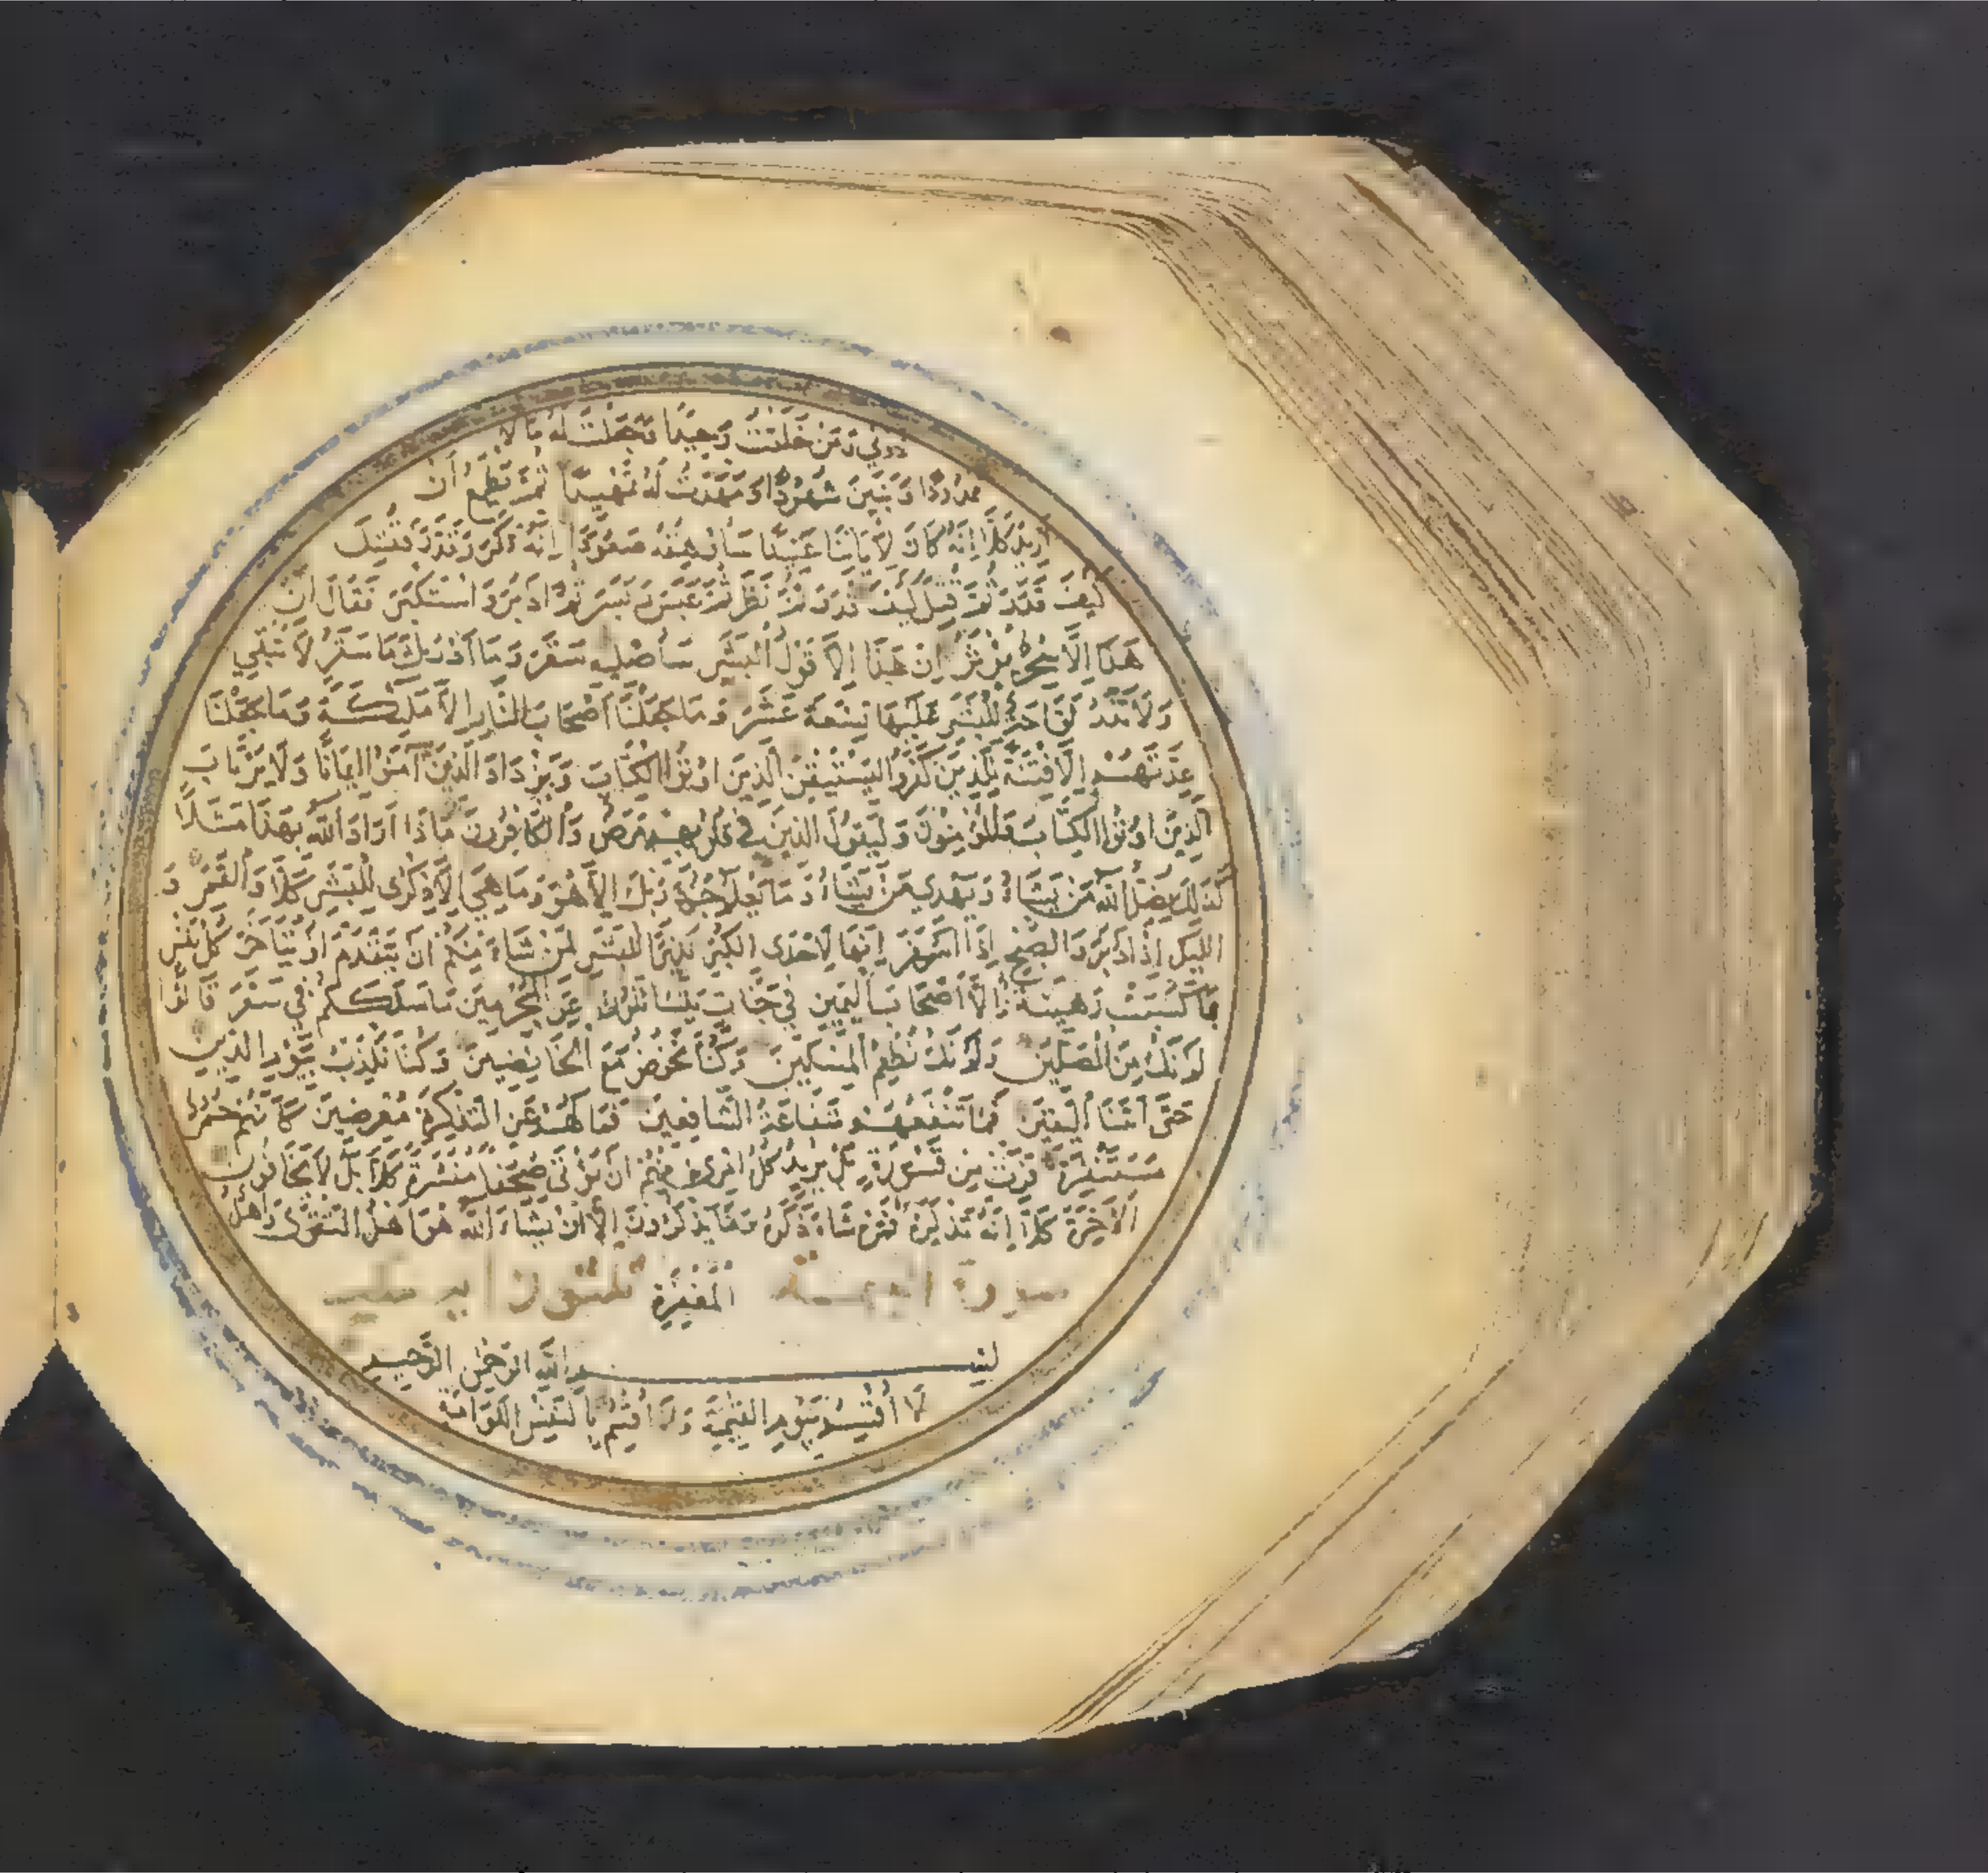 ذرني وَمَنْ خَلَقْتُ وَحِيدًا وَجَعَلْتُ لَهُ مَالًا
مَمْدُودًا وَبَنِينَ شُهُودًا وَمَهَّدْتُ لَهُ تَمْهِيدًا ثُمَّ يَطْمَعُ أَنْ
أَزِيدَ كَلَّا إِنَّهُ كَانَ لِآيَاتِنَا عَنِيدًا سَأُرْهِقُهُ صَعُودًا إِنَّهُ فَكَّرَ وَقَدَّرَ فَقُتِلَ
كَيْفَ قَدَّرَ ثُمَّ قُتِلَ كَيْفَ قَدَّرَ ثُمَّ نَظَرَ ثُمَّ عَبَسَ وَبَسَرَ ثُمَّ أَدْبَرَ وَاسْتَكْبَرَ فَقَالَ إِنْ
هَذَا إِلَّا سِحْرٌ يُؤْثَرُ إِنْ هَذَا إِلَّا قَوْلُ الْبَشَرِ سَأُصْلِيهِ سَقَرَ وَمَا أَدْرٰىكَ مَا سَقَرُ لَا تُبْقِي
وَلَا تَذَرُ لَوَّاحَةٌ لِلْبَشَرِ عَلَيْهَا تِسْعَةَ عَشَرَ وَمَا جَعَلْنَا أَصْحَابَ النَّارِ إِلَّا مَلٰئِكَةً وَمَا جَعَلْنَا
عِدَّتَهُمْ إِلَّا فِتْنَةً لِلَّذِينَ كَفَرُوا لِيَسْتَيْقِنَ الَّذِينَ أُوتُوا الْكِتَابَ وَيَزْدَادَ الَّذِينَ آمَنُوا إِيمَانًا وَلَا يَرْتَابَ
الَّذِينَ أُوتُوا الْكِتَابَ وَالْمُؤْمِنُونَ وَلِيَقُولَ الَّذِينَ فِي قُلُوبِهِمْ مَرَضٌ وَالْكَافِرُونَ مَاذَا أَرَادَ اللّٰهُ بِهَذَا مَثَلًا
كَذَلِكَ يُضِلُّ اللّٰهُ مَنْ يَشَاءُ وَيَهْدِي مَنْ يَشَاءُ وَمَا يَعْلَمُ جُنُودَ رَبِّكَ إِلَّا هُوَ وَمَا هِيَ إِلَّا ذِكْرٰى لِلْبَشَرِ كَلَّا وَالْقَمَرِ وَ
اللَّيْلِ إِذْ أَدْبَرَ وَالصُّبْحِ إِذَا أَسْفَرَ إِنَّهَا لَإِحْدَى الْكُبَرِ نَذِيرًا لِلْبَشَرِ لِمَنْ شَاءَ مِنْكُمْ أَنْ يَتَقَدَّمَ أَوْ يَتَأَخَّرَ كُلُّ نَفْسٍ
بِمَا كَسَبَتْ رَهِينَةٌ إِلَّا أَصْحَابَ الْيَمِينِ فِي جَنَّاتٍ يَتَسَائَلُونَ عَنِ الْمُجْرِمِينَ مَا سَلَكَكُمْ فِي سَقَرَ قَالُوا
لَمْ نَكُ مِنَ الْمُصَلِّينَ وَلَمْ نَكُ نُطْعِمُ الْمِسْكِينَ وَكُنَّا نَخُوضُ مَعَ الْخَائِضِينَ وَكُنَّا نُكَذِّبُ بِيَوْمِ الدِّينِ
حَتَّى أَتٰنَا الْيَقِينُ فَمَا تَنْفَعُهُمْ شَفَاعَةُ الشَّافِعِينَ فَمَا لَهُمْ عَنِ التَّذْكِرَةِ مُعْرِضِينَ كَأَنَّهُمْ حُمُرٌ
مُسْتَنْفِرَةٌ فَرَّتْ مِنْ قَسْوَرَةٍ بَلْ يُرِيدُ كُلُّ امْرِئٍ مِنْهُمْ أَنْ يُؤْتَى صُحُفًا مُنَشَّرَةً كَلَّا بَلْ لَا يَخَافُونَ
الْآخِرَةَ كَلَّا إِنَّهُ تَذْكِرَةٌ فَمَنْ شَاءَ ذَكَرَهُ وَمَا يَذْكُرُونَ إِلَّا أَنْ يَشَاءَ اللّٰهُ هُوَ أَهْلُ التَّقْوٰى وَأَهْلُ
سورة القيمة الْمَغْفِرَةِ ثلثون اية مكية
بِسْمِ اللّٰهِ الرَّحْمٰنِ الرَّحِيمِ
لَا أُقْسِمُ بِيَوْمِ الْقِيٰمَةِ وَلَا أُقْسِمُ بِالنَّفْسِ اللَّوَّامَةِ